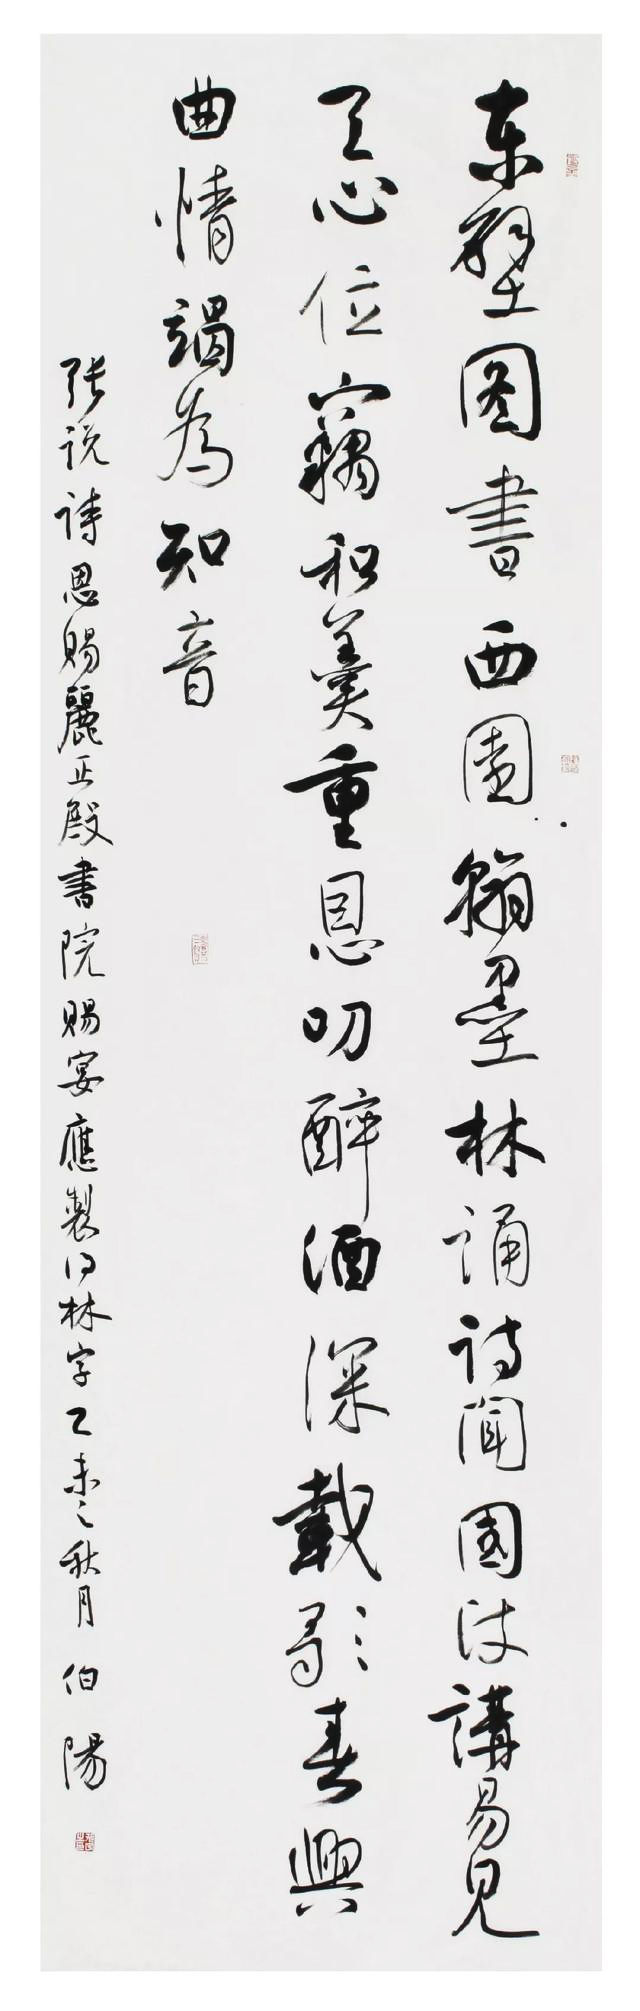 东壁图書西園翰墨林誦詩聞國政講易見
天心位竊和羹重恩叨醉酒深載歌春興
曲情竭為知音
張説詩恩賜麗正殿書院賜宴應製得林字乙未之秋月伯陽